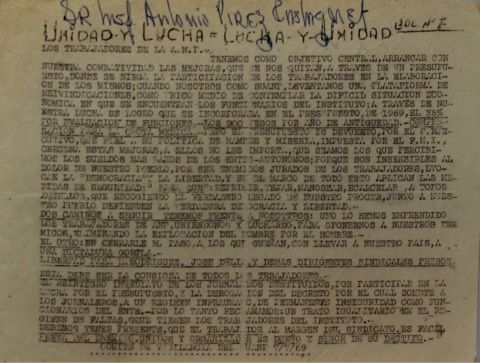 SR Insp Antonio PIREZ
BOL Nº 7
UNIDAD-Y LUCHA = LUCHA-Y-UNIDAD
LOS TRABAJADORES DE LA A.N.P.
TENEMOS COMO OBJETIVO CENTRAL, ARRANCAR CON
NUESTRA COMBATIVIDAD LAS MEJORAS, QUE SE NOS QUITAN A TRAVES DE UN PRESUPUES-
TO, DONDE SE NIEGA LA PARTICIPACION DE LOS TRABAJADORES EN LA ELABORACI-
ON DE LOS MISMOS; CUANDO NOSOTROS COMO LEVANTAMOS UNA PLATAFORMA DE
REIVINDICACIONES, COMO UNICO MEDIO DE LA DIFICIL SITUACION ECO-
NOMICA EN QUE SE ENCUENTRAN LOS FUNCIONARIOS DEL INSTITUTO; A TRAVES DE NU-
ESTRA LUCHA, SE LOGRO QUE SE INCORPORARA EN EL PRESUPUESTO DE 1969, EL
POR EVALUACION DE FUNCIONES -LOS 900 PESOS POR AÑO DE ANTIGUEDAD-
PARA LA CUOTA MEDICA.- PERO EL PRESUPUESTO ES DEVUELTO, POR EL EJE-
CUTIVO, QUE FIEL A SU POLITICA DE HAMBRE Y MISERIA, POR EL F.M.I.,
CERCENA ESTAS MEJORAS, A ELLOS NO LES QUE SEAMOS LOS QUE PERCIBI-
MOS LOS SUELDOS MAS BAJOS DE LOS ENTES-AUTONOMOS; PORQUE SON INSENSIBLES AL
DOLOR DE NUESTRO PUEBLO, POR SER ENEMIGOS JURADOS DE LOS TRABAJADORES,
CAN LA "DEMOCRACIA" LA LIBERTAD, Y EL MARCO DE TODO ESTO APLICAN LAS ME-
DIDAS DE SEGURIDAD: PARA QUE: REPRIMIR, VEJAR, MANOSEAR, ECARCELAR, A TODOS
AQUELLOS, QUE RECOGIENDO EL VERDADERO LEGADO DE NUESTRO PROCER, JUNTO A NUES-
TRO PUEBLO DEFIENDEN LA VERDADERA DEMOCRACIA Y LIBERTAD.-
DOS CAMINOS A SEGUIR TENEMOS FRENTE A NOSOTROS: UNO LO HEMOS EMPRENDIDO
LOS TRABAJADORES DE UNIENDONOS Y LUCHANDO, PARA OPONERNOS A NUESTROS ENE
MIGOS, ELIMINANDO LA EXPLOTACION DEL HOMBRE POR EL HOMBRE.-
EL OTRO: ES CERRARLE EL PASO, A LOS QUE SUEÑAN, CON LLEVAR A NUESTRO PAIS, A
UNA DICTADURA
LIBERTAD PARA JOSE DELIA, Y DEMAS DIRIGENTES SINDICALES PRESOS.
ESTA DEBE SER LA CONSIGNA DE TODOS LOS TRABAJADORES.-
EL REINTEGRO INMEDIATO DE LOS DESTITUIDOS, POR PARTICIPAR EN LA
LUCHA POR EL PRESUPUESTO, Y LA DEROGACION DEL DECRETO POR EL CUAL SOMETE A
LOS JORNALEROS, A UN REGIMEN INHUMANO, DE PERMANENTE INSEGURIDAD COMO FUN-
CIONARIOS DEL ENTE.- POR LO TANTO RECLAMAMOS: UN TRATO IGUALITARIO EN EL RE-
GIMEN DE FALTAS, QUE TIENEN LOS TRABAJADORES DEL INSTITUTO.-
DEBEMOS TENER PRESENTE, QUE EL TRABAJADOR AL MARGEN DEL SINDICATO, ES FACIL
PRESA DEL ENEMIGO, UNIDOS Y ORGANIZADOS ES DUEÑO Y SEÑOR DE SU DESTINO.